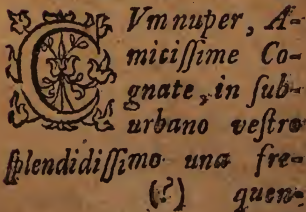 CVm nuper, A-
miciſſime Co-
gnate, in ſub-
urbano veſtro
ſplendidiſſimo una fre-
(?) quen-